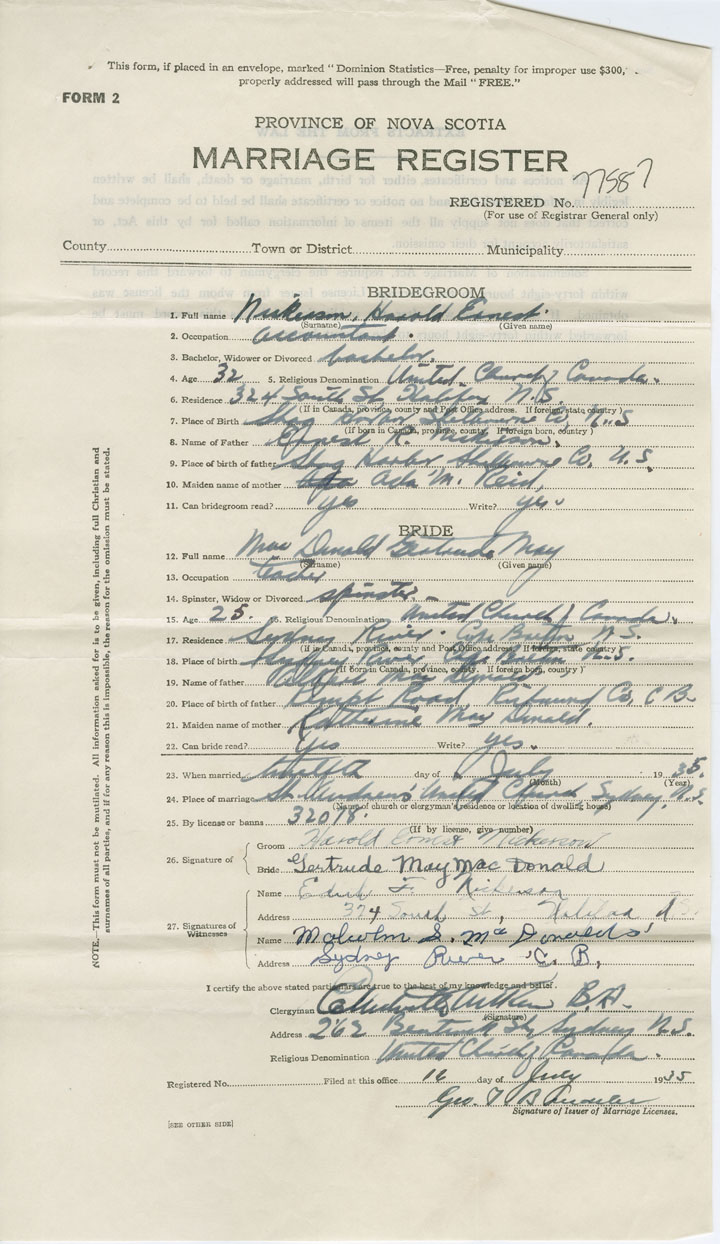 This form, if placed in an envelope, marked "Dominion Statistics—Free, penalty for improper use $300,"
properly addressed will pass through the Mail "FREE."
FORM 2
PROVINCE OF NOVA SCOTIA
MARRIAGE REGISTER
REGISTERED No. 77587
(For use of Registrar General only)
County Town or District Municipality
BRIDEGROOM
1. Full name Nickerson, Harold Ernest
(Surname) (Given name)
2. Occupation accountant.
3. Bachelor, Widower or Divorced bachelor.
4. Age 32 5. Religious Denomination United Church of Canada.
6. Residence 324 South St. Halifax N.S.
(If in Canada, province, county and Post Office address. If foreign, state country)
7. Place of Birth Shag Harbor Shelburne Co. N.S
(If born in Canada, province, county. If foreign born, country)
8. Name of Father Ernest R. Nickerson.
9. Place of birth of father Shag Harbor Shelburne Co. N.S.
10. Maiden name of mother Ada M. Reid.
11. Can bridegroom read? yes Write? yes.
BRIDE
12. Full name Mac Donald Gertrude May
(Surname) (Given name)
13. Occupation teacher
14. Spinster, Widow or Divorced spinster.
15. Age 25. 16. Religious Denomination United Church of Canada.
17. Residence Sydney River. Cape Breton N.S.
(If in Canada, province, county and Post Office address. If foreign, state country)
18. Place of birth Sydney River Cape Breton N.S.
(If Born in Canada, province, county. If foreign born, country)
19. Name of father Mac Donald
20. Place of birth of father Road, Richmond Co. C B.
21. Maiden name of mother Katherine Mac Donald.
22. Can bride read? Yes Write? yes.
23. When married day of July 1935.
(Month) (Year)
24. Place of marriage St. Andrew's United Church Sydney, N.S.
(Name of church or clergyman's residence or location of dwelling house)
25. By license or banns 32078.
(If by license, give number)
26. Signature of
Groom Harold Ernest Nickerson
Bride Gertrude May Mac Donald
27. Signatures of Witnesses
Name Edith F. Nickerson
Address 324 South St., Halifax N.S.
Name Malcolm S. Mac Donald
Address Sydney River C. B.
I certify the above stated particulars are true to the best of my knowledge and belief.
Clergyman Aitken B.A.
(Signature)
Address 262 Bentinck St. Sydney N.S.
Religious Denomination United Church of Canada.
Registered No. Filed at this office 16 day of July 1935
Geo.
Signature of Issuer of Marriage Licenses.
[SEE OTHER SIDE]
NOTE.—This form must not be mutilated. All information asked for is to be given, including full Christian and
surnames of all parties, and if for any reason this is impossible, the reason for the omission must be stated.